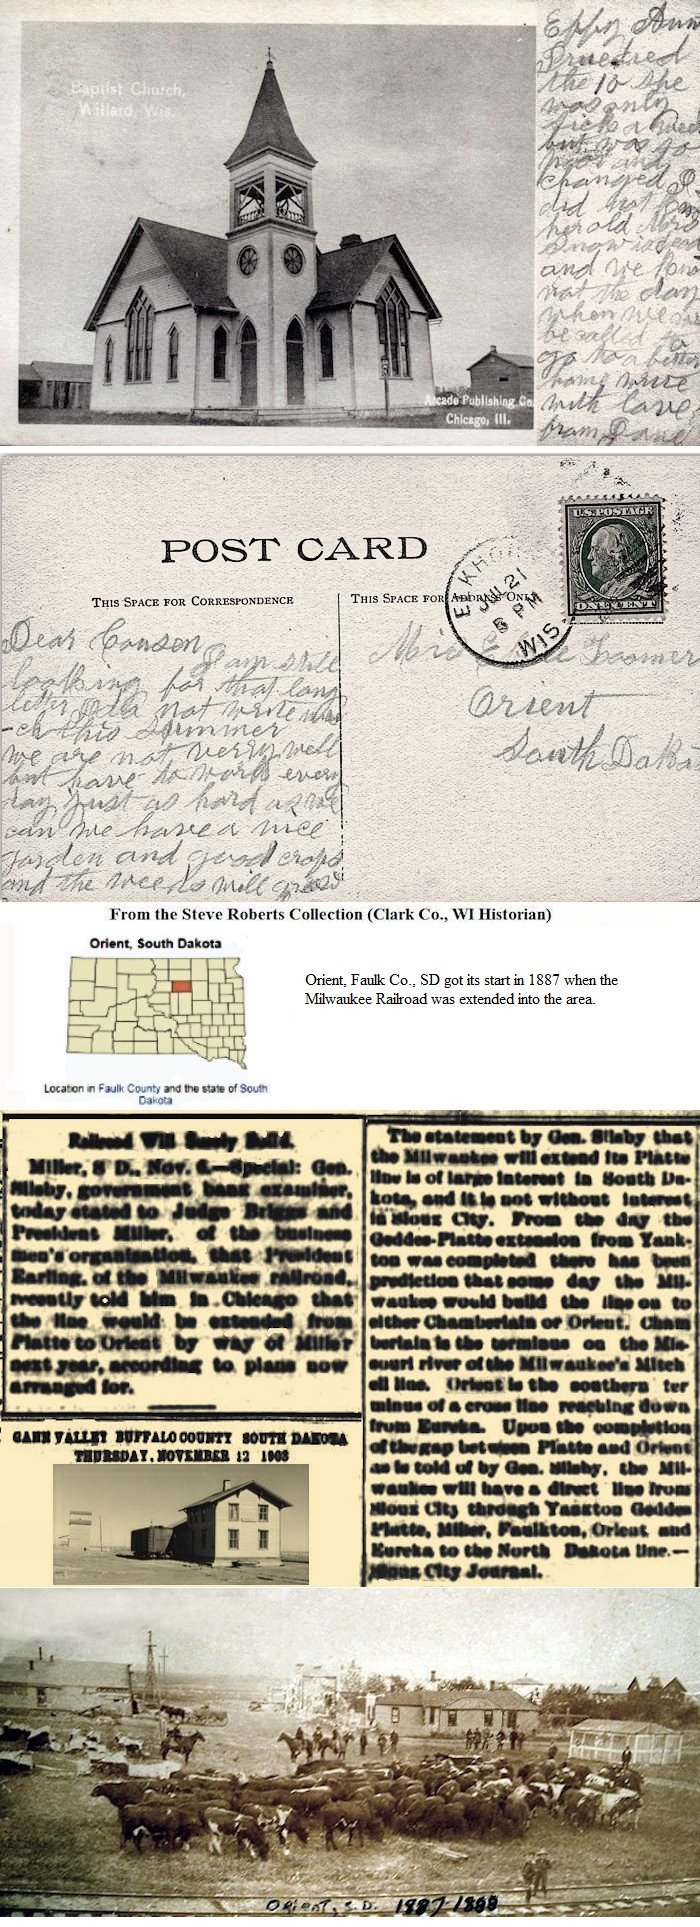 Baptist Church,
Willard, Wis.
Arcade Publishing Co.
Chicago, Ill.
the 10 she
was only
sick a week
but was so
poor and
changed I
did not
her old
and we know
not the day
when we
be called to
go to a better
home write
with love
from
POST CARD
THIS SPACE FOR CORRESPONDENCE
THIS SPACE FOR ADDRESS ONLY
ELKHORN
JUL 21
5 PM
WIS.
U.S. POSTAGE
ONE CENT
Dear Couson
I am still
looking for that long
letter did not write
-ch this Summer
we are not verry well
but have to work every
day just as hard as we
can we have a nice
garden and good crops
and the weeds will grow
Orient
South Dakota
From the Steve Roberts Collection (Clark Co., WI Historian)
Orient, South Dakota
Location in Faulk County and the state of South
Dakota
Orient, Faulk Co., SD got its start in 1887 when the
Milwaukee Railroad was extended into the area.
Railroad Will Surely Build.
Miller, S D., Nov. 6.—Special: Gen.
Silsby, government bank examiner,
today stated to Judge Briggs and
President Miller, of the business
men's organization, that President
Earling, of the Milwaukee railroad,
recently told him in Chicago that
the line would be extended from
Platte to Orient by way of Miller
next year, according to plans now
arranged for.
GANN VALLEY BUFFALO COUNTY SOUTH DAKOTA
THURSDAY, NOVEMBER 12 1903
The statement by Gen. Silsby that
the Milwaukee will extend its Platte
line is of large interest in South Da-
kota, and it is not without interest
in Sioux City. From the day the
Geddes-Platte extension from Yank-
ton was completed there has been
prediction that some day the Mil-
waukee would build the line on to
either Chamberlain or Orient. Cham
berlain is the terminus on the Mis-
souri river of the Milwaukee's Mitch
ell line. Orient is the southern ter
minus of a cross line reaching down
from Eureka. Upon the completion
of the gap between Platte and Orient
as is told of by Gen. Silsby, the Mil-
waukee will have a direct line from
Sioux City through Yankton Geddes
Platte, Miller, Faulkton, Orient and
Eureka to the North Dakota line.—
Sioux City Journal.
Orient, S.D. 1887-1888